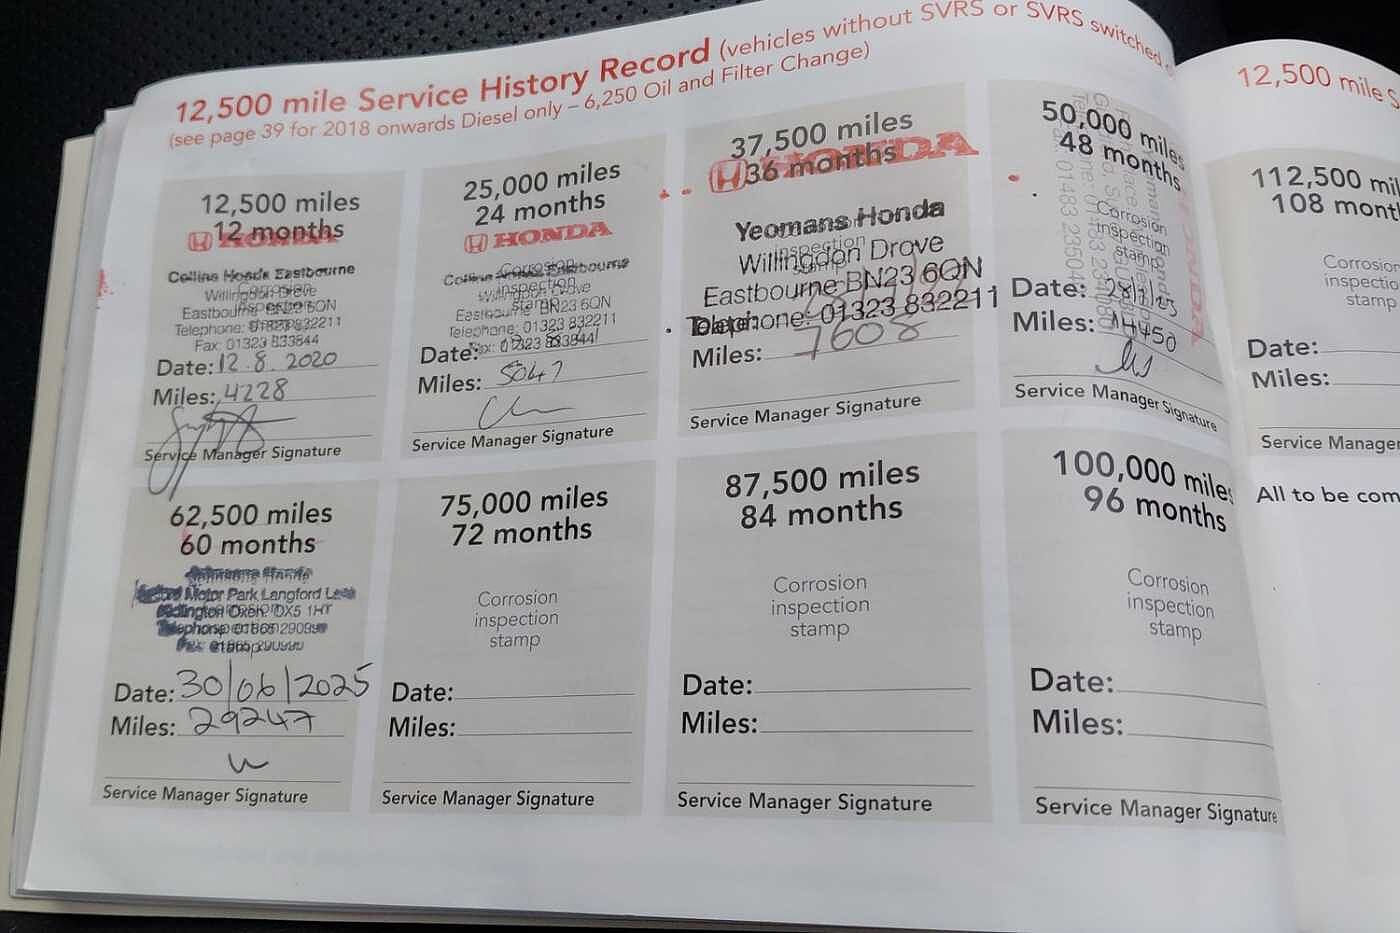 12,500 mile Service History Record (vehicles without SVRS or SVRS switched
(see page 39 for 2018 onwards Diesel only – 6,250 Oil and Filter Change)
12,500 miles
12 months
HONDA
Collins Honda Eastbourne
Willingdon Drove
Eastbourne BN23 6QN
Telephone: 01323 832211
Fax: 01323 833844
Date: 12.8.2020
Miles: 4228
Service Manager Signature
25,000 miles
24 months
HONDA
Corrosion
Collins Honda Eastbourne
inspection
Willingdon Drove
stamp
Eastbourne BN23 6QN
Telephone: 01323 832211
Date:
Fax: 01323 833844
Miles: 5047
Service Manager Signature
37,500 miles
36 months
HONDA
Yeomans Honda
inspection
Willingdon Drove
Eastbourne BN23 6QN
Telephone: 01323 832211
Date:
Miles: 7608
Service Manager Signature
50,000 miles
48 months
HONDA
Corrosion
inspection
stamp
Date: 28/7/23
Miles: 14450
Service Manager Signature
62,500 miles
60 months
Honda
Motor Park Langford
Oxon OX5 1HT
Date: 30/06/2025
Miles: 29247
Service Manager Signature
75,000 miles
72 months
Corrosion
inspection
stamp
Date:
Miles:
Service Manager Signature
87,500 miles
84 months
Corrosion
inspection
stamp
Date:
Miles:
Service Manager Signature
100,000 miles
96 months
Corrosion
inspection
stamp
Date:
Miles:
Service Manager Signature
12,500 mile
112,500
108
Corrosion
stamp
Date:
Miles:
Service Manager
All to be